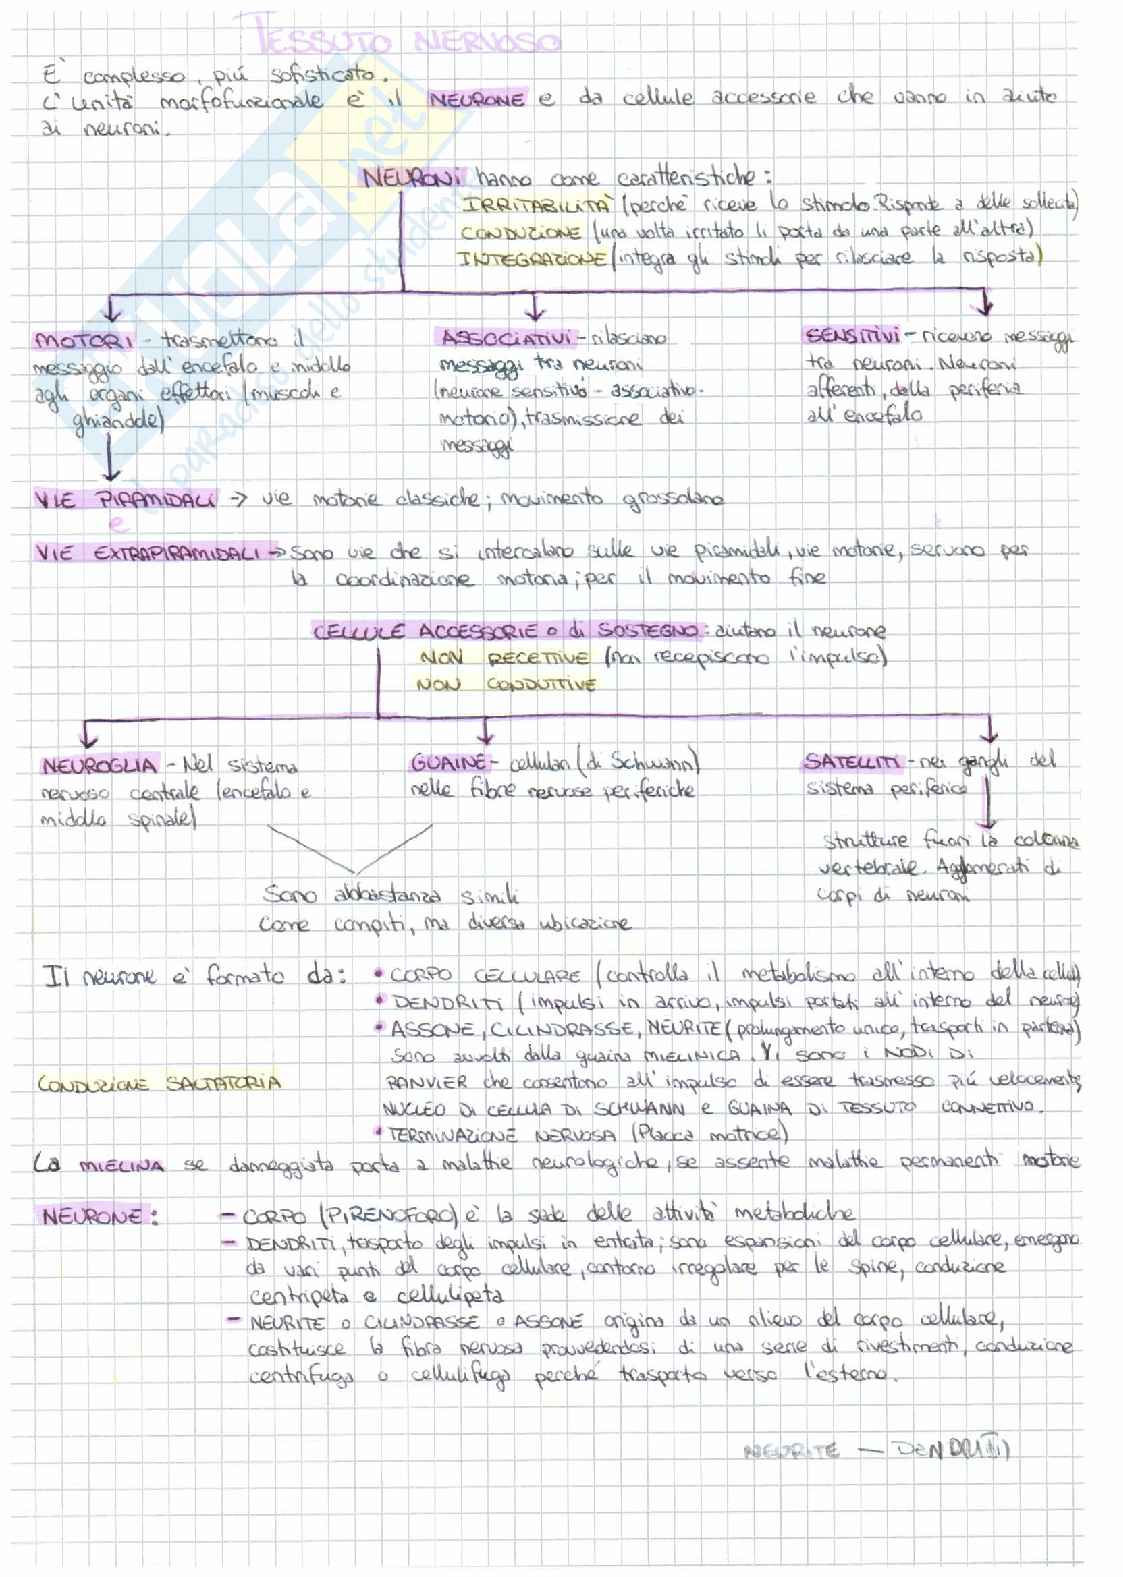 TESSUTO NERVOSO
È complesso, più sofisticato.
L'unità morfofunzionale è il NEURONE e da cellule accessorie che vanno in aiuto
ai neuroni.
NEURONI hanno come caratteristiche:
IRRITABILITÀ (perché riceve lo stimolo. Risponde a delle sollecita)
CONDUZIONE (una volta irritato li porta da una parte all'altra)
INTEGRAZIONE (integra gli stimoli per rilasciare la risposta)
MOTORI - trasmettono il
messaggio dall'encefalo e midollo
agli organi effettori (muscoli e
ghiandole)
ASSOCIATIVI - rilasciano
messaggi tra neuroni
(neurone sensitivo - associativo-
motorio), trasmissione dei
messaggi
SENSITIVI - ricevono messaggi
tra neuroni. Neuroni
afferenti, dalla periferia
all'encefalo
VIE PIRAMIDALI → vie motorie classiche; movimento grossolano
e
VIE EXTRAPIRAMIDALI → Sono vie che si intercalano sulle vie piramidali, vie motorie, servono per
la coordinazione motoria; per il movimento fine
CELLULE ACCESSORIE o di SOSTEGNO: aiutano il neurone
NON RECETTIVE (non recepiscono l'impulso)
NON CONDUTTIVE
NEUROGLIA - Nel sistema
nervoso centrale (encefalo e
midollo spinale)
GUAINE - cellulari (di Schwann)
nelle fibre nervose periferiche
SATELLITI - nei gangli del
sistema periferico
strutture fuori la colonna
vertebrale. Agglomerati di
corpi di neuroni
Sono abbastanza simili
come compiti, ma diversa ubicazione
Il neurone è formato da: • CORPO CELLULARE (controlla il metabolismo all'interno della cellula)
• DENDRITI (impulsi in arrivo, impulsi portati all'interno del neurone)
• ASSONE, CILINDRASSE, NEURITE (prolungamento unico, trasporti in partenza)
Sono avvolti dalla guaina MIELINICA. Vi sono i NODI DI
CONDUZIONE SALTATORIA RANVIER che consentono all'impulso di essere trasmesso più velocemente,
NUCLEO DI CELLULA DI SCHWANN e GUAINA DI TESSUTO CONNETTIVO.
• TERMINAZIONE NERVOSA (Placca motrice)
La MIELINA se danneggiata porta a malattie neurologiche, se assente malattie permanenti motorie
NEURONE: - CORPO (PIRENOFORO) è la sede delle attività metaboliche
- DENDRITI, trasporto degli impulsi in entrata; sono espansioni del corpo cellulare, emergono
da vari punti del corpo cellulare, contorno irregolare per le spine, conduzione
centripeta e cellulipeta
- NEURITE o CILINDRASSE o ASSONE origina da un rilievo del corpo cellulare,
costituisce la fibra nervosa provvedendosi di una serie di rivestimenti, conduzione
centrifuga o cellulifuga perché trasporto verso l'esterno.
NEURITE — DENDRITI